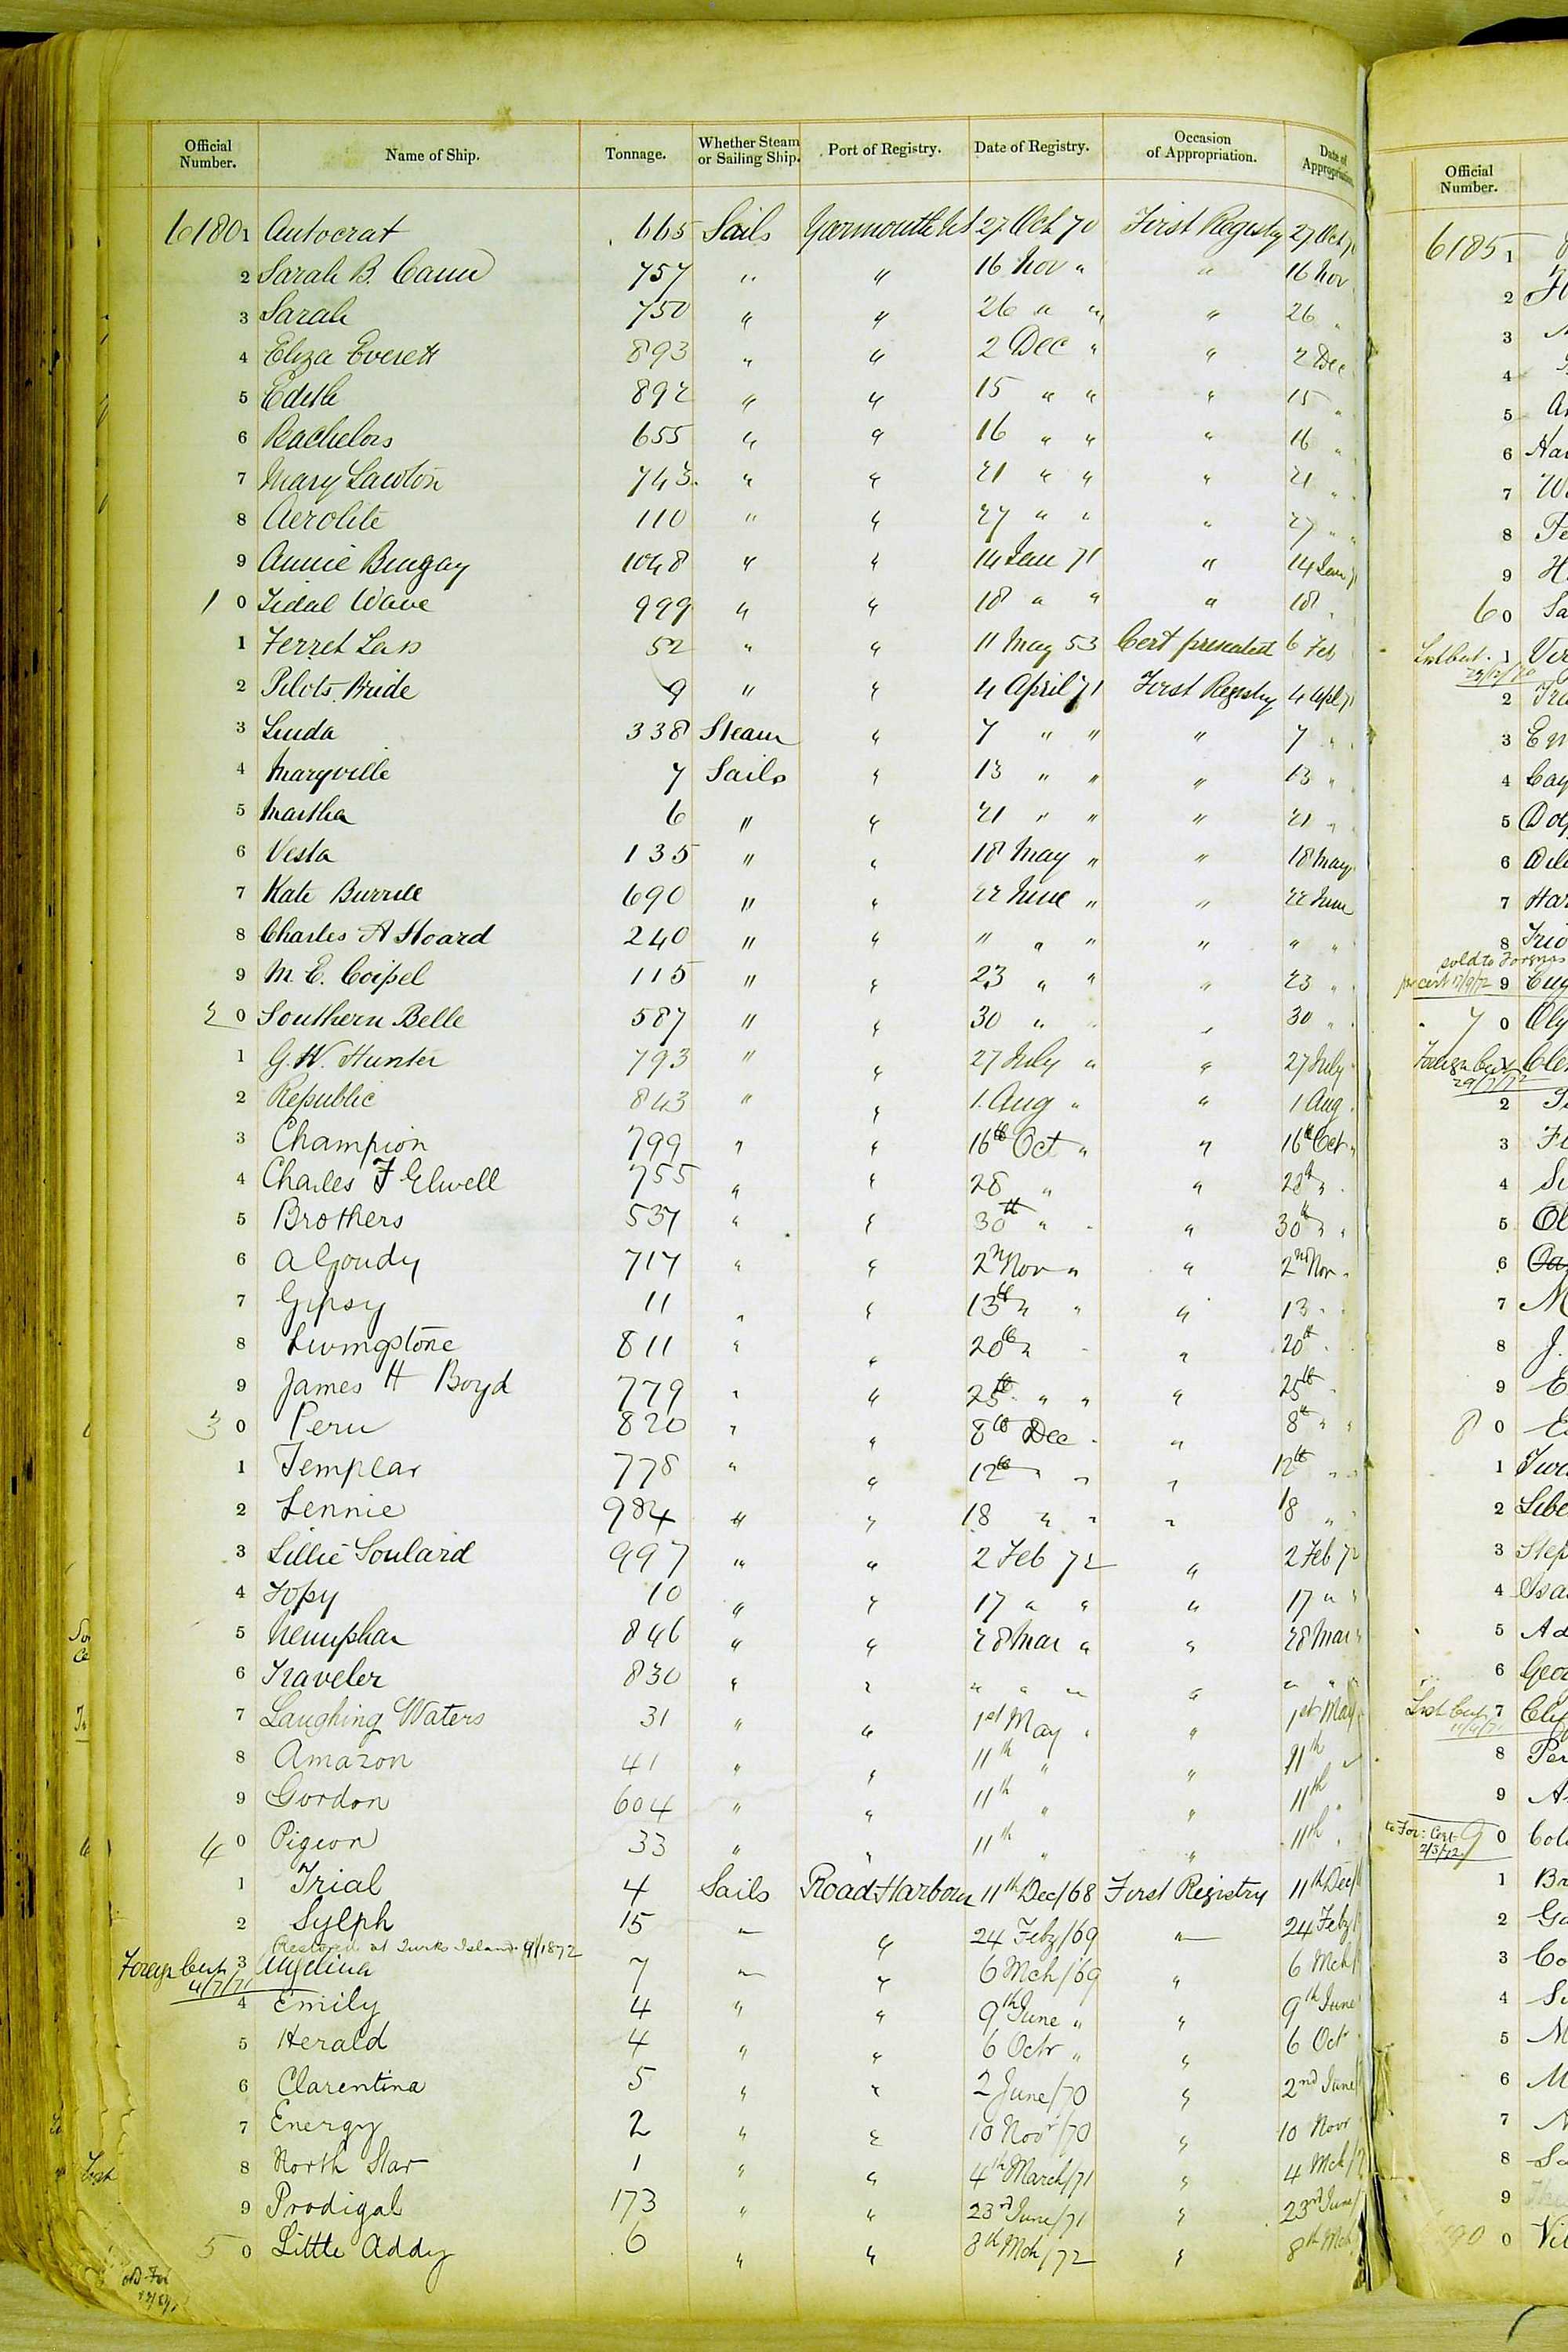 Official Number. Name of Ship. Tonnage. Whether Steam or Sailing Ship. Port of Registry. Date of Registry. Occasion of Appropriation. Date of Appropriation.
6180 1 Autocrat 665 Sails Yarmouth NS 27 Oct 70 First Registry 27 Oct
2 Sarah B. Cann 757 " " 16 Nov " " 16 Nov
3 Sarah 750 " " 26 " " " 26 "
4 Eliza Everett 893 " " 2 Dec " " 2 Dec
5 Edith 892 " " 15 " " " 15 "
6 Bachelors 655 " " 16 " " " 16 "
7 Mary Lawton 743 " " 21 " " " 21 "
8 Aerolite 110 " " 27 " " " 27 " "
9 Annie Bingay 1048 " " 14 Jan 71 " 14 Jan 71
1 0 Tidal Wave 999 " " 18 " " " 18 "
1 Ferret Lass 52 " " 11 May 53 Cert presented 6 Feb
2 Pilots Bride 9 " " 4 April 71 First Registry 4 Apl 71
3 Linda 338 Steam " 7 " " " 7 " "
4 Maryville 7 Sails " 13 " " " 13 "
5 Martha 6 " " 21 " " " 21 "
6 Vesta 135 " " 18 May " " 18 May
7 Kate Burrill 690 " " 22 June " " 22 June
8 Charles A Hoard 240 " " " " " " " "
9 M. E. Coipel 115 " " 23 " " " 23 "
2 0 Southern Belle 587 " " 30 " " " 30 "
1 G. W. Hunter 793 " " 27 July " " 27 July
2 Republic 843 " " 1. Aug " " 1 Aug
3 Champion 799 " " 16th Oct " " 16th Oct "
4 Charles F Elwell 755 " " 28 " " 28th "
5 Brothers 537 " " 30th " " " 30th " "
6 A Goudy 717 " " 2nd Nov " " 2nd Nov "
7 Gipsy 11 " " 13th " " " 13 "
8 Livingstone 811 " " 20th " " " 20th "
9 James H Boyd 779 " " 25th " " " 25th "
3 0 Peru 820 " " 8th Dec " " 8th " "
1 Templar 778 " " 12th " " " 12th " "
2 Lennie 984 " " 18 " " " 18 "
3 Lillie Soulard 997 " " 2 Feb 72 " 2 Feb 72
4 Topsy 10 " " 17 " " " 17 " "
5 Nenuphar 846 " " 28 Mar " " 28 Mar "
6 Traveler 830 " " " " " " " "
7 Laughing Waters 31 " " 1st May " " 1st May
8 Amazon 41 " " 11th " " 11th "
9 Gordon 604 " " 11th " " 11th "
4 0 Pigeon 33 " " 11th " " 11th "
1 Trial 4 Sails Road Harbour 11th Dec/68 First Registry 11th Dec/
2 Sylph 15 " " 24 Feby/69 " 24 Feby/
Restored at Turks Island 9/1872
Foreign Cert 4/7/71 3 7 " " 6 Mch/69 " 6 Mch/
4 Emily 4 " " 9th June " " 9th June
5 Herald 4 " " 6 Octr " " 6 Octr
6 Clarentina 5 " " 2 June/70 " 2nd June/
7 Energy 2 " " 10 Novr/70 " 10 Novr
8 North Star 1 " " 4th March/71 " 4 Mch/7
9 Prodigal 173 " " 23rd June/71 " 23rd June/
5 0 Little Addy 6 " " 8th Mch/72 " 8th Mch
Official Number.
6185 1
2
3
4
5
6
7
8
9
6 0
1
2
3
4
5
6
7
8
sold to
9
7 0
Foreign Cert 1
29/7/72
2
3
4
5
6
7 M
8 J.
9
8 0
1
2
3
4
5
6
7
8
9
9 0
1
2
3
4
5
6
7
8
9
0